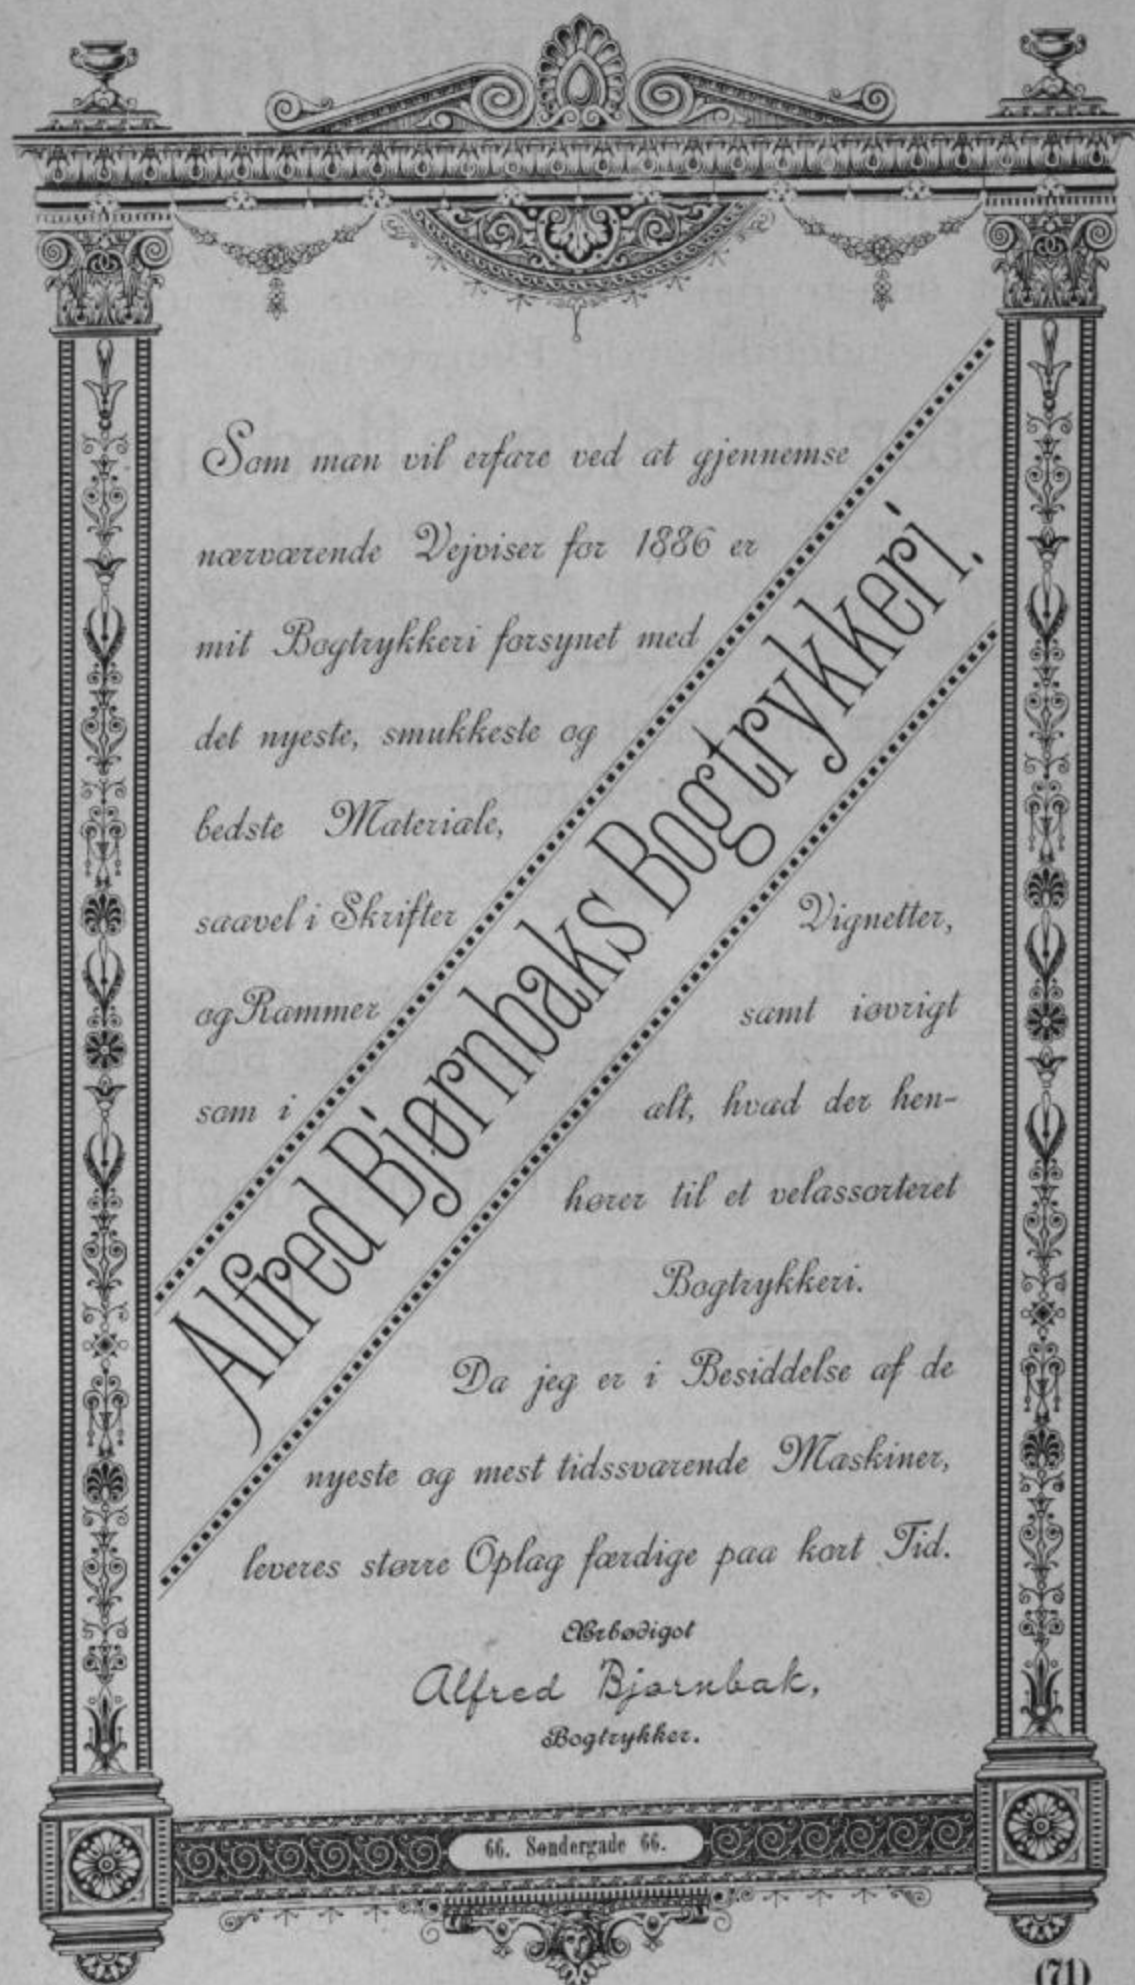 Som man vil erfare ved at gjennemse
nærværende Vejviser for 1886 er
mit Bogtrykkeri forsynet med
det nyeste, smukkeste og
bedste Materiale,
saavel i Skrifter
og Rammer
som i
Alfred Bjørnbaks Bogtrykkeri.
Vignetter,
samt iøvrigt
alt, hvad der hen-
hører til et velassorteret
Bogtrykkeri.
Da jeg er i Besiddelse af de
nyeste og mest tidssvarende Maskiner,
leveres større Oplag færdige paa kort Tid.
Ærbødigst
Alfred Bjørnbak,
Bogtrykker.
66. Søndergade 66.
(71)